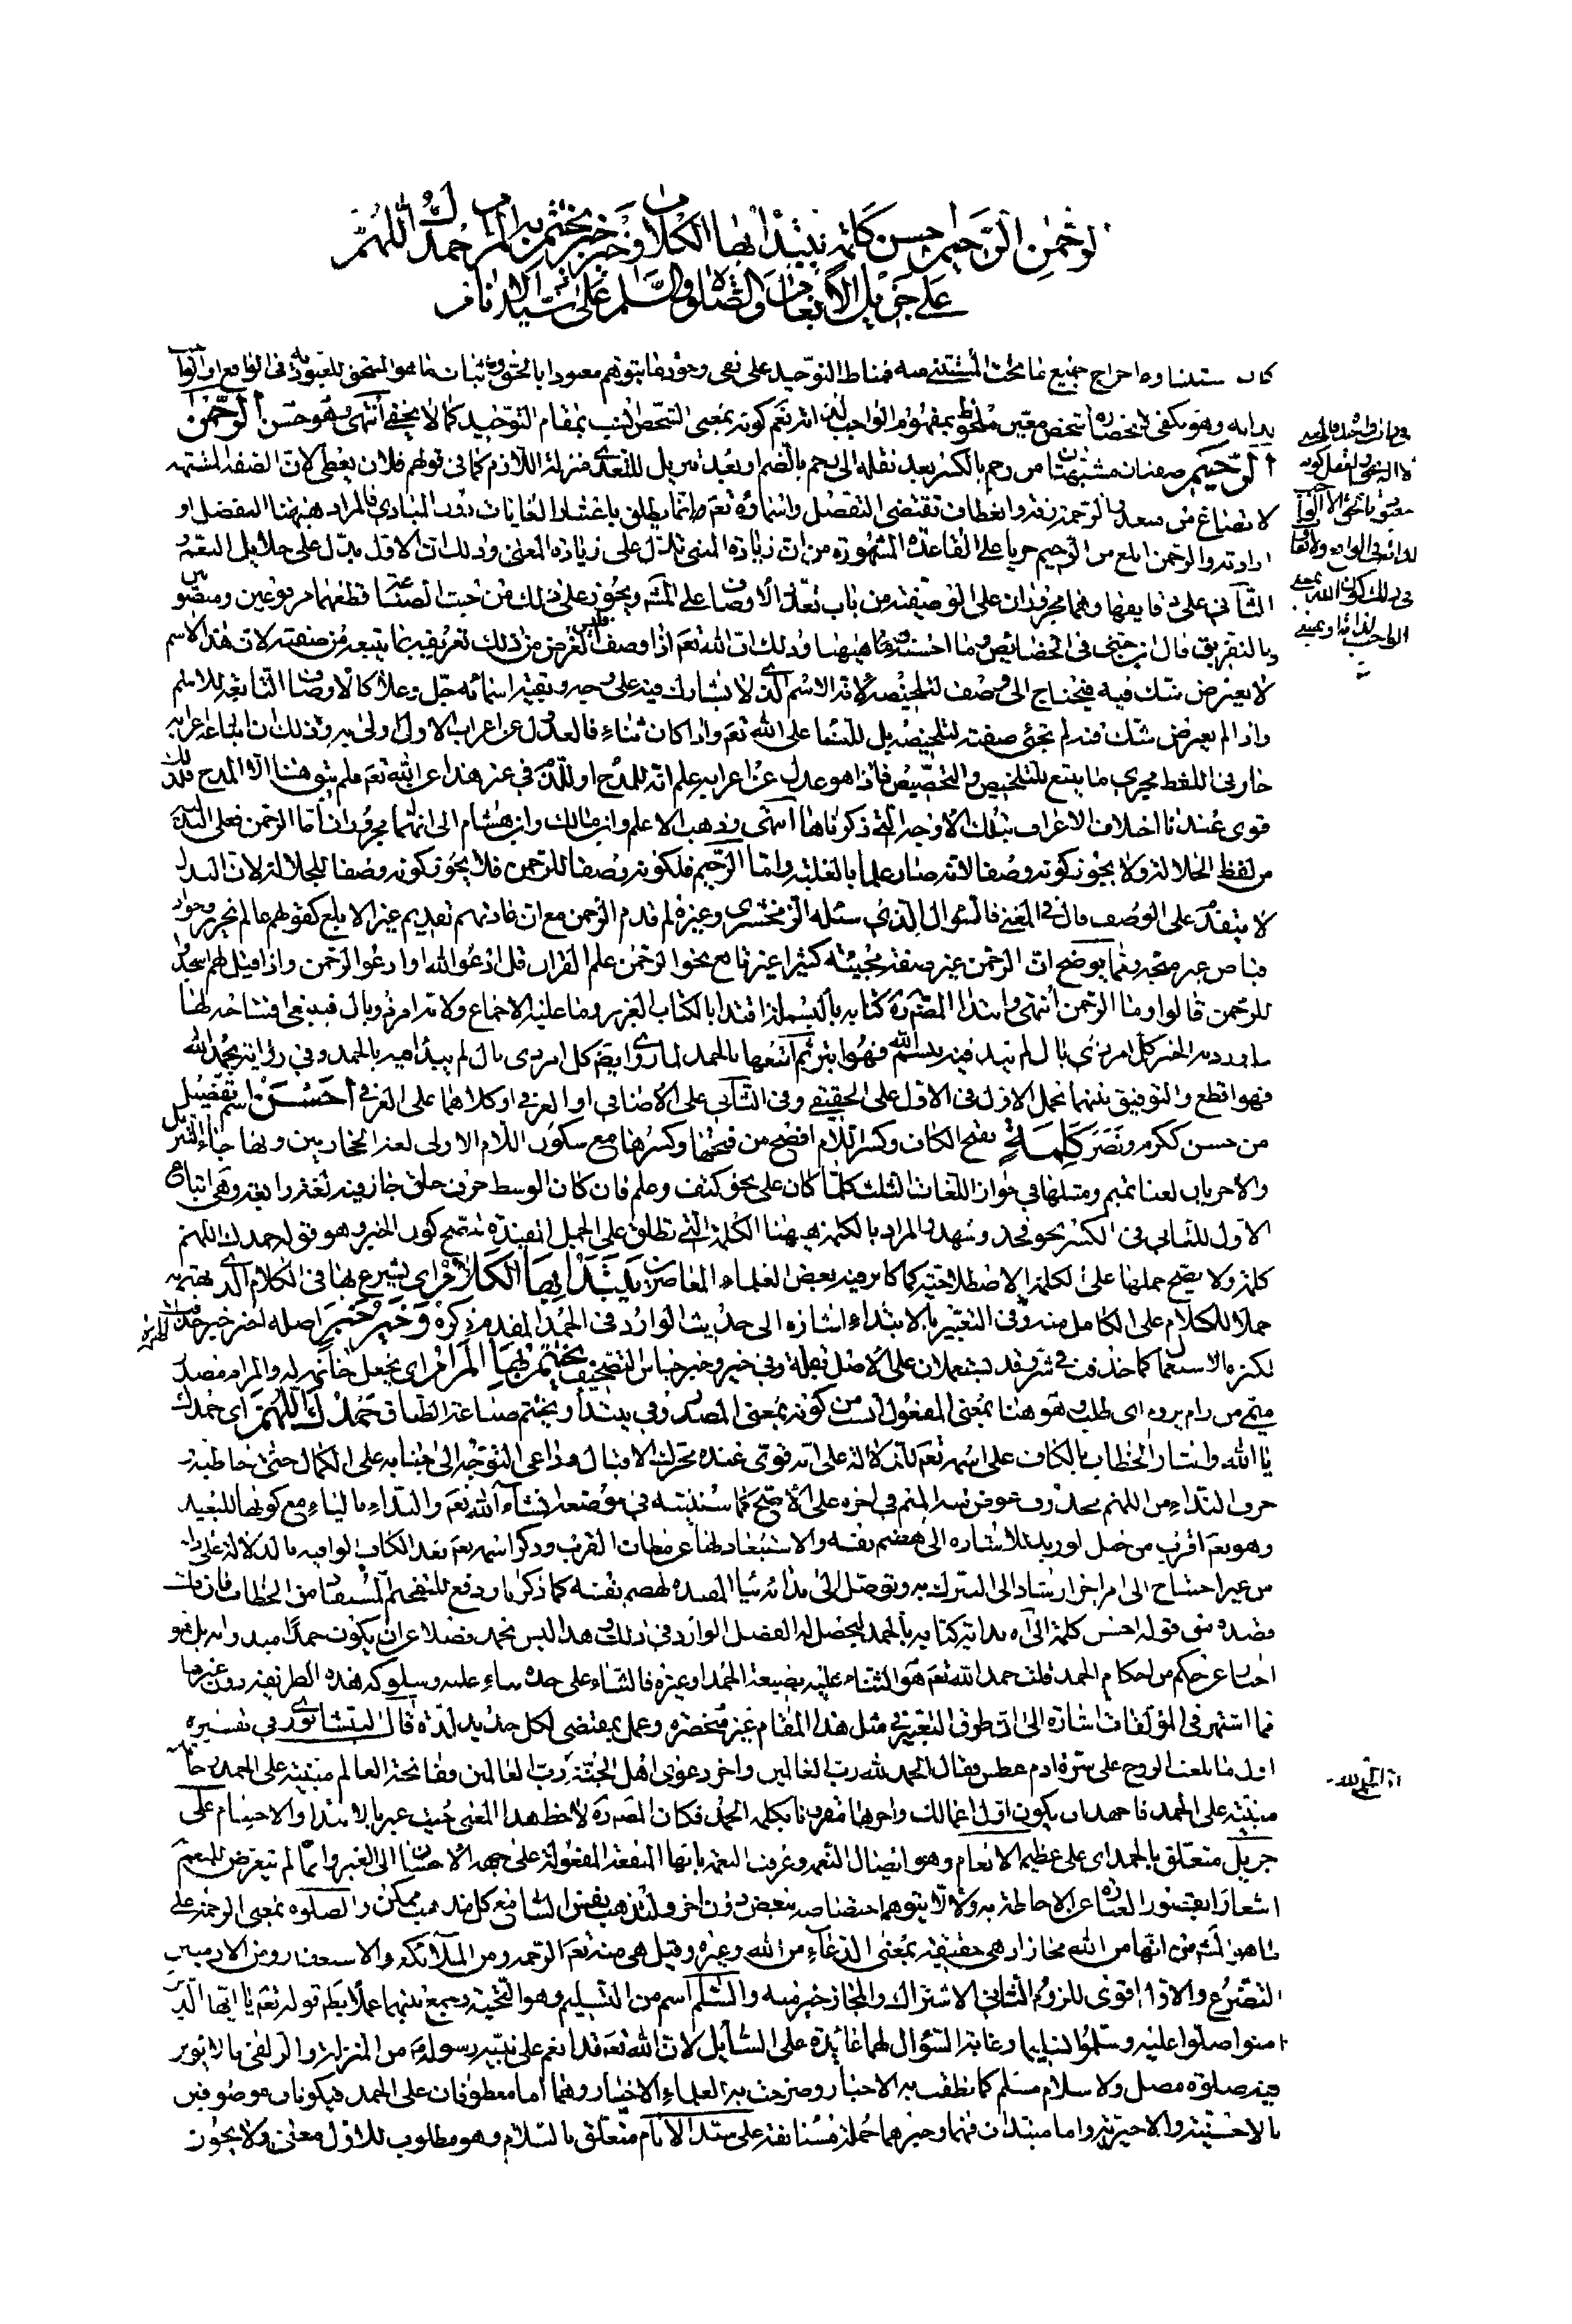 الرحمن الرحيم احسن كلمة يبتدأ بها الكلام وخير خبر يختتم به المرام حمدك اللهم
على جزيل الانعام والصلوة والسلم على سيد الانام
كان مستلزما اخراج جميع ما تحت المستثنى منه فمناط التوحيد على نفى وجود ما يتوهم معبودا بالحق واثبات ما هو المستحق للعبودية فى الواقع
بذاته وهو يكفى انحصاره بشخص معين ملحوظ بمفهوم الواجب لذاته نعم كونه بمعنى الشخص انسب بمقام التوحيد كما لا يخفى انتهى وهو حسن الرحمن
الرحيم صفتان مشبهتان من رحم بالكسر بعد نقله الى رحم بالضم او بعد تنزيل المتعدى منزلة اللازم كما فى قولهم فلان يعطى لان الصفة المشبهة
لا تصاغ من متعد والرحمة رقة وانعطاف تقتضى التفضل واسماؤه تعم انما يطلق باعتبار الغايات دون المبادى فالمراد هنا التفضل او
ارادته والرحمن ابلغ من الرحيم جريا على القاعدة المشهورة من ان زيادة المبنى تدل على زيادة المعنى وذلك ان الاول يدل على جلايل النعم و
الثانى على دقايقها وهما مجروران على الوصفية من باب تعدد الاوصاف على المشهور ويجوز على ذلك من حيث الصناعة قطعهما مرفوعين ومنصوبين
وبالتفريق قال ابن جنى فى الخصايص وما احسنه ههنا وذلك ان الله تعم اذا وصف فليس الغرض من ذلك تعريفه بما يتبعه من صفته لان هذا الاسم
لا يعترض شك فيه فيحتاج الى وصف لتلخيصه لانه الاسم الذى لا يشارك فيه على وجه وبقية اسمائه جل وعلا كالاوصاف التابعة للاسم
واذا لم يعترض شك فيه لم تجئ صفته لتلخيصه بل للثناء على الله تعم واذا كان ثناء فالعدول عن اعراب الاول اولى به وذلك ان اتباعه اعرابه
جار فى اللفظ مجرى ما يتبع للتلخيص والتخصيص فاذا هو عدل عن اعرابه علم انه للمدح او للذم فى غير هذا عز الله تعم فلم يبق هنا الا المدح فلذلك
قوى عندنا اختلاف الاعراب بتلك الاوجه التى ذكرناها انتهى وذهب الاعلم وابن مالك وابن هشام الى انهما مجروران اما الرحمن فعلى البدلية
من لفظ الجلالة ولا يجوز كونه وصفا لانه صار علما بالغلبة واما الرحيم فلكونه وصفا للرحمن فلا يجوز كونه وصفا للجلالة لان البدل
لا يتقدم على الوصف قال فى المغنى فالسؤال الذى سئله الزمخشرى وغيره لم قدم الرحمن مع ان عادتهم تقديم غير الابلغ كقولهم عالم نحرير وجواد
فياض غير متجه ومما يوضح ان الرحمن غير صفة مجيئه كثيرا غير تابع نحو الرحمن علم القران قل ادعوا الله او ادعوا الرحمن واذا قيل لهم اسجدوا
للرحمن قالوا وما الرحمن انتهى وابتدا المصره كتابه بالبسملة اقتدا بالكتاب العزيز وما عليه الاجماع ولانه امر ذو بال فينبغى افتتاحه لها
لما ورد من الخبر كل امر ذى بال لم يبدء فيه ببسم الله فهو ابتر ثم اتبعها بالحمد لما روى ايضم كل امر ذى بال لم يبدأ فيه بالحمد وفى رواية بحمد الله
فهو اقطع والتوفيق بينهما بحمل الاول فى الاول على الحقيقى وفى الثانى على الاضافى او العرفى او كلاهما على العرفى احسن اسم تفضيل
من حسن ككرم ونصر كلمة بفتح الكاف وكسر اللام افصح من فتحها وكسرها مع سكون اللام الاولى لغة الحجازيين وبها جاء التنزيل
والاخريان لغتا تميم ومثلها فى جواز اللغات الثلث كلما كان على نحو كتف وعلم فان كان الوسط حرف حلق جاز فيه لغة رابعة وهى اتباع
الاول للثانى فى الكسر نحو فخذ وشهد والمراد بالكلمة ههنا الكلمة التى تطلق على الجمل المفيدة ليصح كون الخبر وهو قوله حمدك اللهم
كلمة ولا يصح حملها على الكلمة الاصطلاحية كما كابر فيه بعض العلماء المعاصرين يبتدأ بها الكلام اى يشرع بها فى الكلام الذى يهتم به
حملا للكلام على الكامل منه وفى التعبير بالابتداء اشارة الى حديث الوارد فى الحمد المقدم ذكره وخير خبر اصله اخير خبر حذفت الهمزة
لكثرة الاستعمال كما حذفت فى شر وقد يستعملان على الاصل بقلة وفى خير وخبر جناس التصحيف يختتم بها المرام اى يجعل خاتمة له والمرام مصدر
ميمى من رام يروم اى طلب وهو هنا بمعنى المفعول انسب من كونه بمعنى المصدر وفى يبتدأ ويختتم صناعة الطباق حمدك اللهم اى حمدك
يا الله واختار الخطاب بالكاف على اسمه تعم للدلالة على انه قوى عنده محرك الاقبال وداعى التوجه الى جنابه على الكمال حتى خاطبه و
حرف النداء من اللهم محذوف عوض عنه الميم فى اخره على الاصح كما سنثبته فى موضعه انشاء الله تعم والنداء بالياء مع كونها للبعيد
وهو تعم اقرب من حبل الوريد للاشارة الى هضم نفسه والاستبعاد لها عن مظان القرب وذكر اسمه تعم بعد الكاف الوافيه بالدلالة على ذاته
من غير احتياج الى امر اخر ارشاد الى التبرك به
قصده من قوله احسن كلمة الى آخره بداية كتابه بالحمد ليحصل له الفضل الوارد فى ذلك وهذا ليس بحمد فضلا عن ان يكون حمدا مبدوا به بل هو
اخبار عن حكم من احكام الحمد قلت حمد الله تعم هو الثناء عليه بصيغة الحمد او غيره فالثناء على حمده ثناء عليه وسلوكه هذه الطريقة دون غيرها
مما اشتهر فى المؤلفات اشارة الى ان طرق التعبير فى مثل هذا المقام غير منحصرة وعمل بمقتضى لكل جديد لذة قال النيشابورى فى تفسيره
اول ما بلغ الروح على سرة ادم عطس فقال الحمد لله رب العالمين واخر دعوى اهل الجنة الحمد لله رب العالمين ففاتحة العالم مبنية على الحمد وخاتمته
مبنية على الحمد فاجهد ان يكون اول اعمالك واخرها مقرونا بكلمة الحمد فكان المصره لاحظ هذا المعنى حيث عبر بالابتداء والاختتام على
جزيل متعلق بالحمد اى على عظيم الانعام وهو ايصال النعمة وعرفت النعمة بانها المنفعة المفعولة على جهة الاحسان الى الغير وانما لم يتعرض للمنعم به
اشعارا بقصور العبارة عن الاحاطة به ولئلا يتوهم اختصاصه ببعض دون اخر ولتذهب نفس السامع كل مذهب ممكن والصلوة بمعنى الرحمة على
ما هو المشهور من انها من الله مجاز او هى حقيقة بمعنى الدعاء من الله وغيره وقيل هى منه تعم الرحمة ومن الملائكة الاستغفار ومن الادميين
التضرع والاول اقوى للزوم الثانى الاشتراك والمجاز خير منه والسلم اسم من التسليم وهو التحية وجمع بينهما عملا بظم قوله تعم يا ايها الذين
امنوا صلوا عليه وسلموا تسليما وغاية السؤال لهما عائدة على السائل لان الله تعم قد انعم على نبيه ورسوله من المنزلة والزلفى ما لا يؤثر
فيه صلوة مصل ولا سلام مسلم كما نطقت به الاخبار وصرحت به العلماء الاخيار وهما اما معطوفان على الحمد فيكونان موصوفين
بالاحسنية والاخيرية واما مبتدان فهما وخبرهما جملة مستانفة على سيد الانام متعلق بالسلام وهو مطلوب للاول معنى ولا يجوز